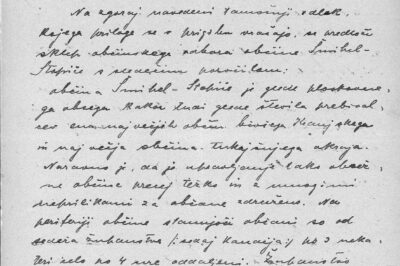 Na zgoraj navedeni tamošnji odlok,
kojega priloge se v prilogi vračajo, se predloži
sklep občinskega odbora občine Šmihel-
Stopiče s sledečim poročilom:
občina Šmihel-Stopiče je glede ploskovne-
ga obsega kakor tudi glede števila prebival-
cev ena največjih občin bivšega Kranjskega
in največja občina tukajšnjega okraja.
Naravno je, da je upravljanje tako obsež-
ne občine precej težko in z mnogimi
neprilikami za občane združeno. Na
periferiji občine stanujoči občani so od
sedeža županstva (: sedaj Kandija :) po 3 neka-
teri celo po 4 ure oddaljeni. Županstvo